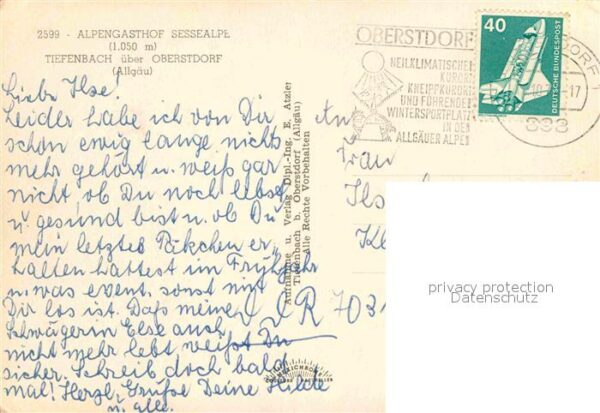 2599 - ALPENGASTHOF SESSEALPE
(1.050 m)
TIEFENBACH über OBERSTDORF
(Allgäu)
Liebe Ilse!
Leider habe ich von Dir
schon ewig lange nichts
mehr gehört u. weiß gar
nicht, ob Du noch lebst
u. gesund bist u. ob Du
mein letztes Päckchen er-
halten hattest im Frühjahr
u. was event. sonst mit
Dir los ist. Daß meine
Schwägerin Else auch
nicht mehr lebt weißt Du
sicher. Schreib doch bald
mal! Herzl. Grüße Deine Hilde
u. alle.
Aufnahme u. Verlag Dipl.-Ing. E. Atzler
Tiefenbach b. Oberstdorf (Allgäu)
Alle Rechte Vorbehalten
OBERSTDORF
HEILKLIMATISCHER
KURORT
KNEIPPKURORT
UND FÜHRENDER
WINTERSPORTPLATZ
IN DEN
ALLGÄUER ALPEN
40
DEUTSCHE BUNDESPOST
DORF 1
-17
898
An
Frau
Ils
DDR 703
privacy protection
Datenschutz